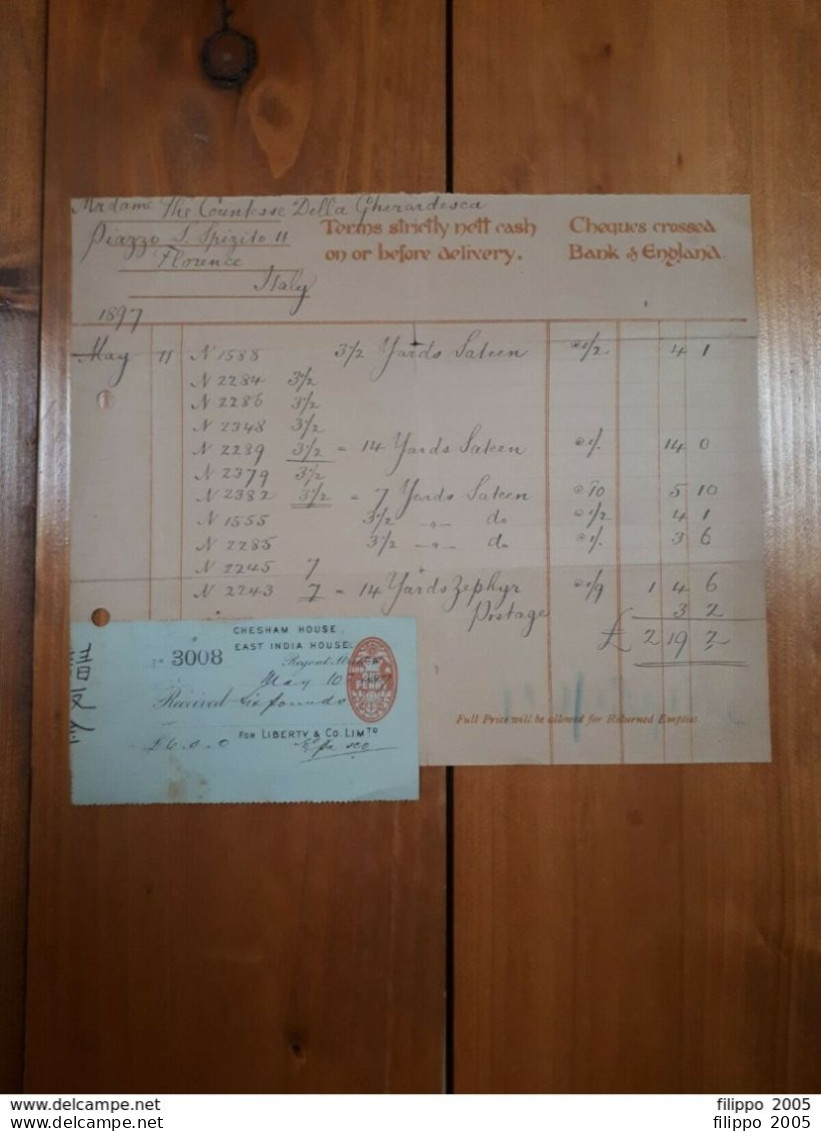 Madame The Countesse Della Gherardesca
Piazzo S. Spizito 11
Florence
Italy
Terms strictly nett cash
on or before delivery.
Cheques crossed
Bank of England.
1897
May 11 N 1588 3½ Yards Sateen @ 1/2 4 1
N 2284 3½
N 2286 3½
N 2348 3½
N 2289 3½ = 14 Yards Sateen @ 1/. 14 0
N 2379 3½
N 2382 3½ = 7 Yards Sateen @ 10 5 10
N 1555 3½ -"- do @ 1/2 4 1
N 2285 3½ -"- do @ 1/. 3 6
N 2245 7
N 2243 7 = 14 Yards Zephyr @ 1/9 1 4 6
Postage 3 2
£ 2 19 2
Full Price will be allowed for Returned Empties.
CHESHAM HOUSE,
EAST INDIA HOUSE,
3008
Regent Street
May 10
PENNY
Received Six pounds
FOR LIBERTY & CO. LIMTD
£6.0.0
www.delcampe.net
www.delcampe.net
filippo 2005
filippo 2005